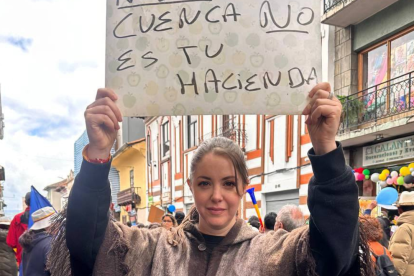 CUENCA NO
ES TU
HACIENDA
GALAN